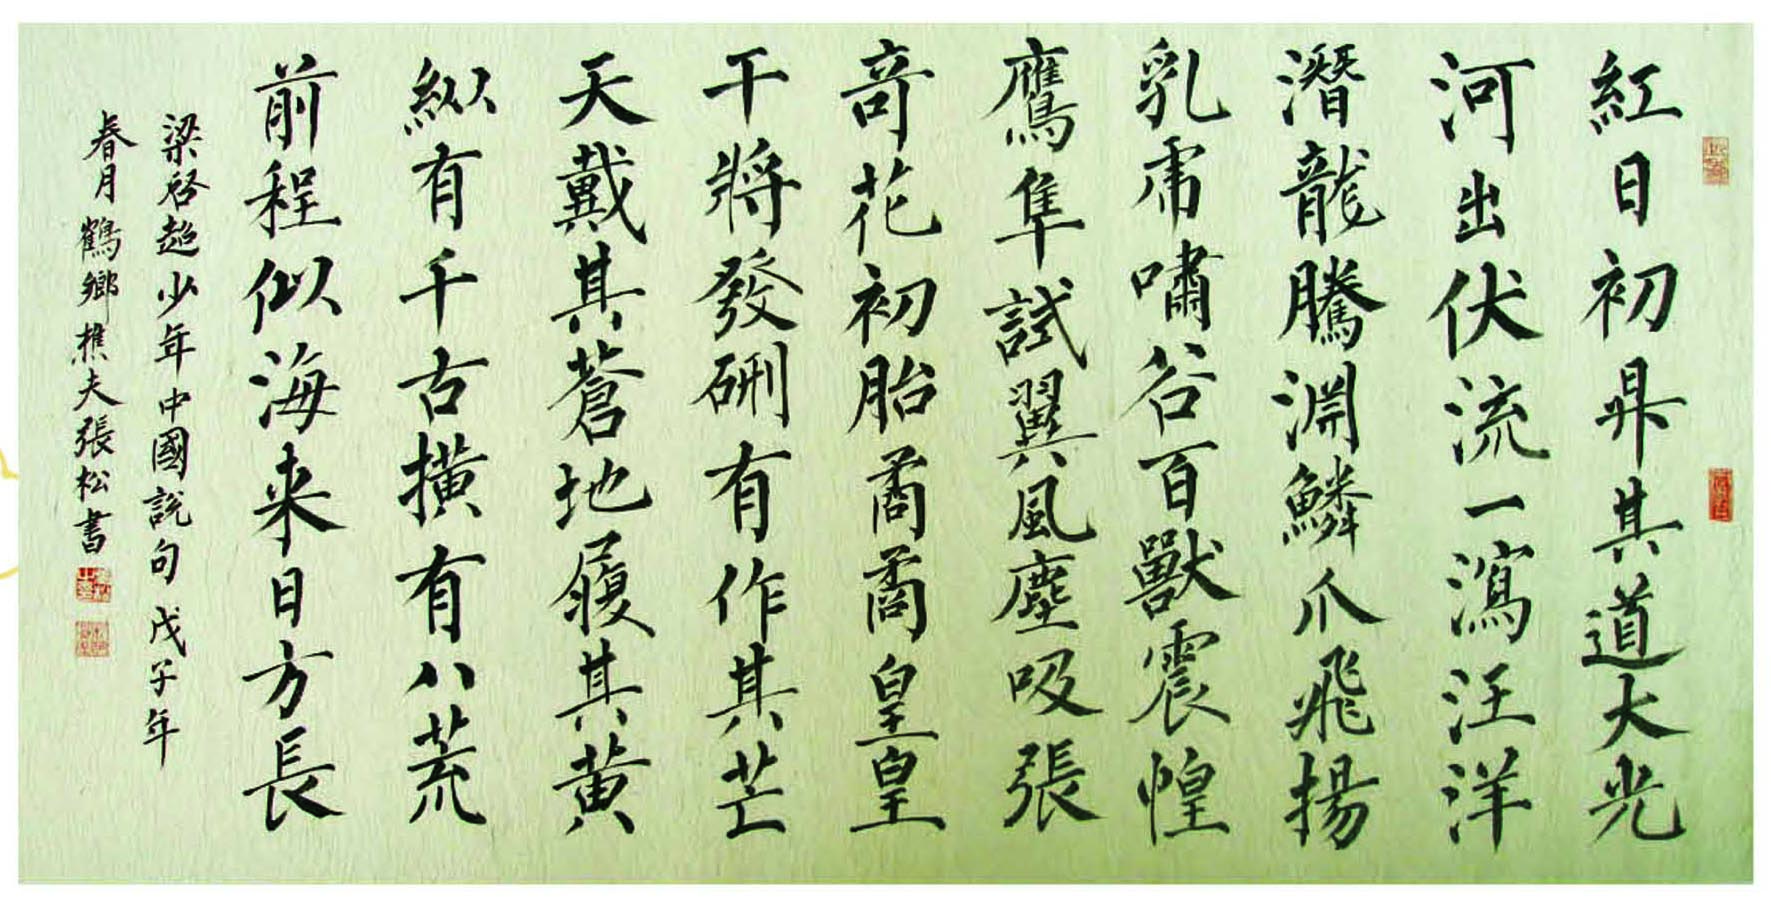 紅日初昇其道大光
河出伏流一瀉汪洋
潛龍騰淵鱗爪飛揚
乳虎嘯谷百獸震惶
鷹隼試翼風塵吸張
奇花初胎矞矞皇皇
干將發硎有作其芒
天戴其蒼地履其黄
纵有千古横有八荒
前程似海来日方長
梁啓超少年中國説句戊子年
春月鶴鄉樵夫張松書